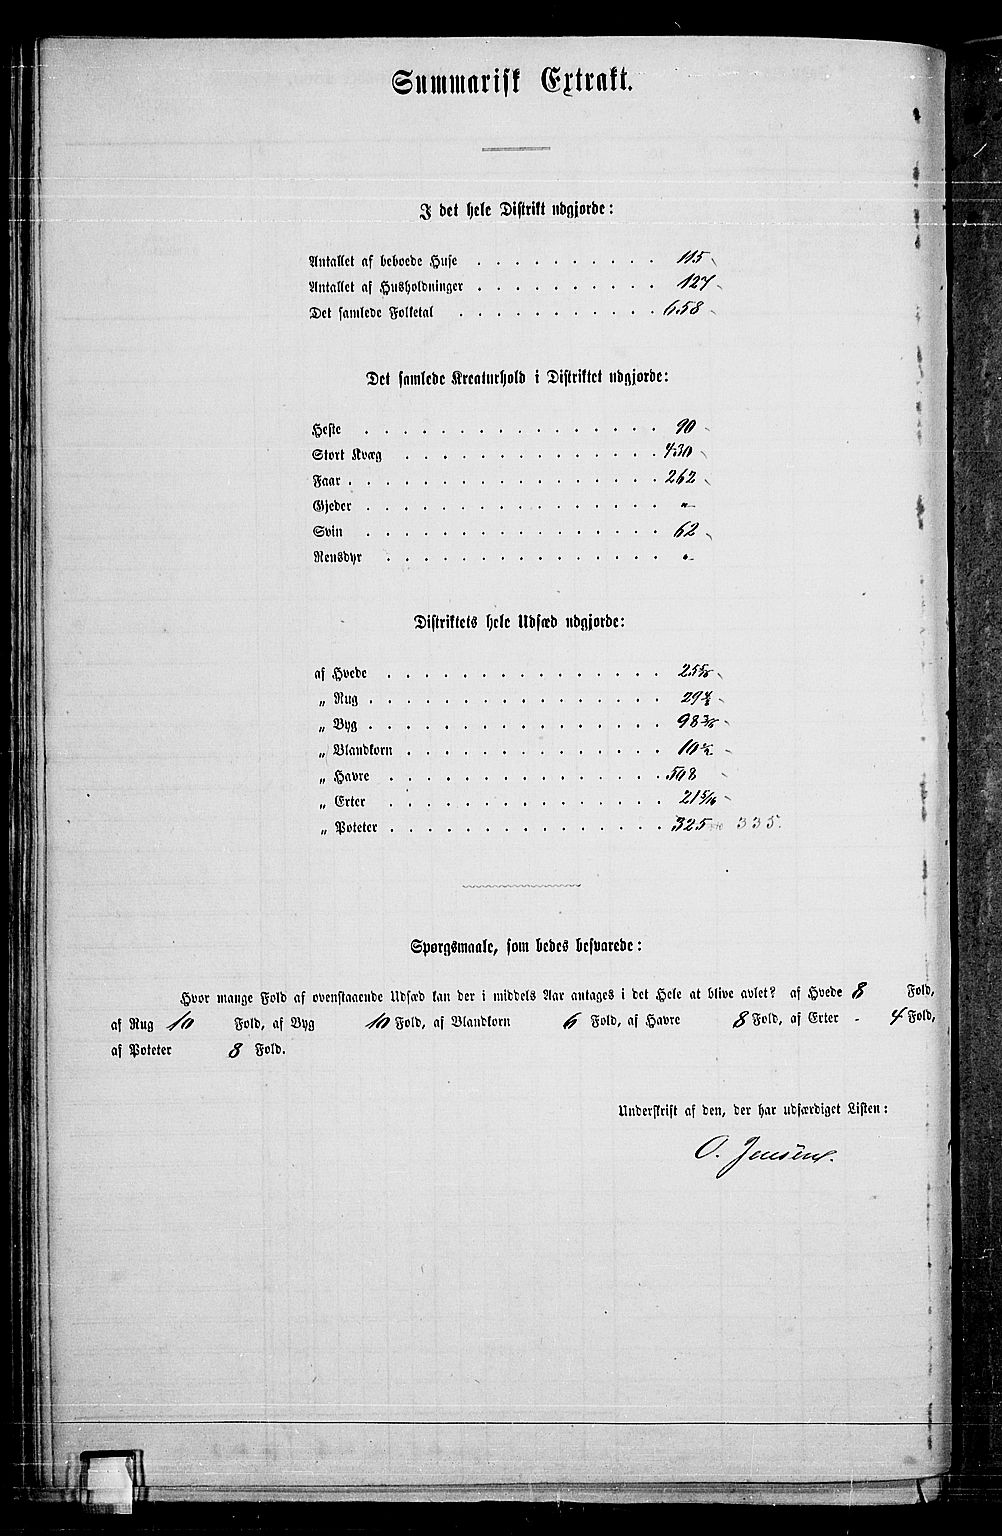 Summarisk Extrakt.
I det hele Distrikt udgjorde:
Antallet af beboede Huse . . . . . . . . . . 115
Antallet af Husholdninger . . . . . . . . . . 127
Det samlede Folketal . . . . . . . . . . . 658
Det samlede Kreaturhold i Distriktet udgjorde:
Heste . . . . . . . . . . . . . . . . 90
Stort Kvæg . . . . . . . . . . . . . . 430
Faar . . . . . . . . . . . . . . . . . 262
Gjeder . . . . . . . . . . . . . . . . "
Svin . . . . . . . . . . . . . . . . 62
Rensdyr . . . . . . . . . . . . . . . "
Distriktets hele Udsæd udgjorde:
af Hvede . . . . . . . . . . . . . . . 25
„ Rug . . . . . . . . . . . . . . . . 29
„ Byg . . . . . . . . . . . . . . . . 98
„ Blandkorn . . . . . . . . . . . . . . 10
„ Havre . . . . . . . . . . . . . . . 508
„ Erter . . . . . . . . . . . . . . . 21 5/16
„ Poteter . . . . . . . . . . . . . . . 325 335.
Spørgsmaale, som bedes besvarede:
Hvor mange Fold af ovenstaaende Udsæd kan der i middels Aar antages i det Hele at blive avlet? af Hvede 8 Fold,
af Rug 10 Fold, af Byg 10 Fold, af Blandkorn 6 Fold, af Havre 8 Fold, af Erter - 4 Fold,
af Poteter 8 Fold.
Underskrift af den, der har udfærdiget Listen:
O. Jensen.